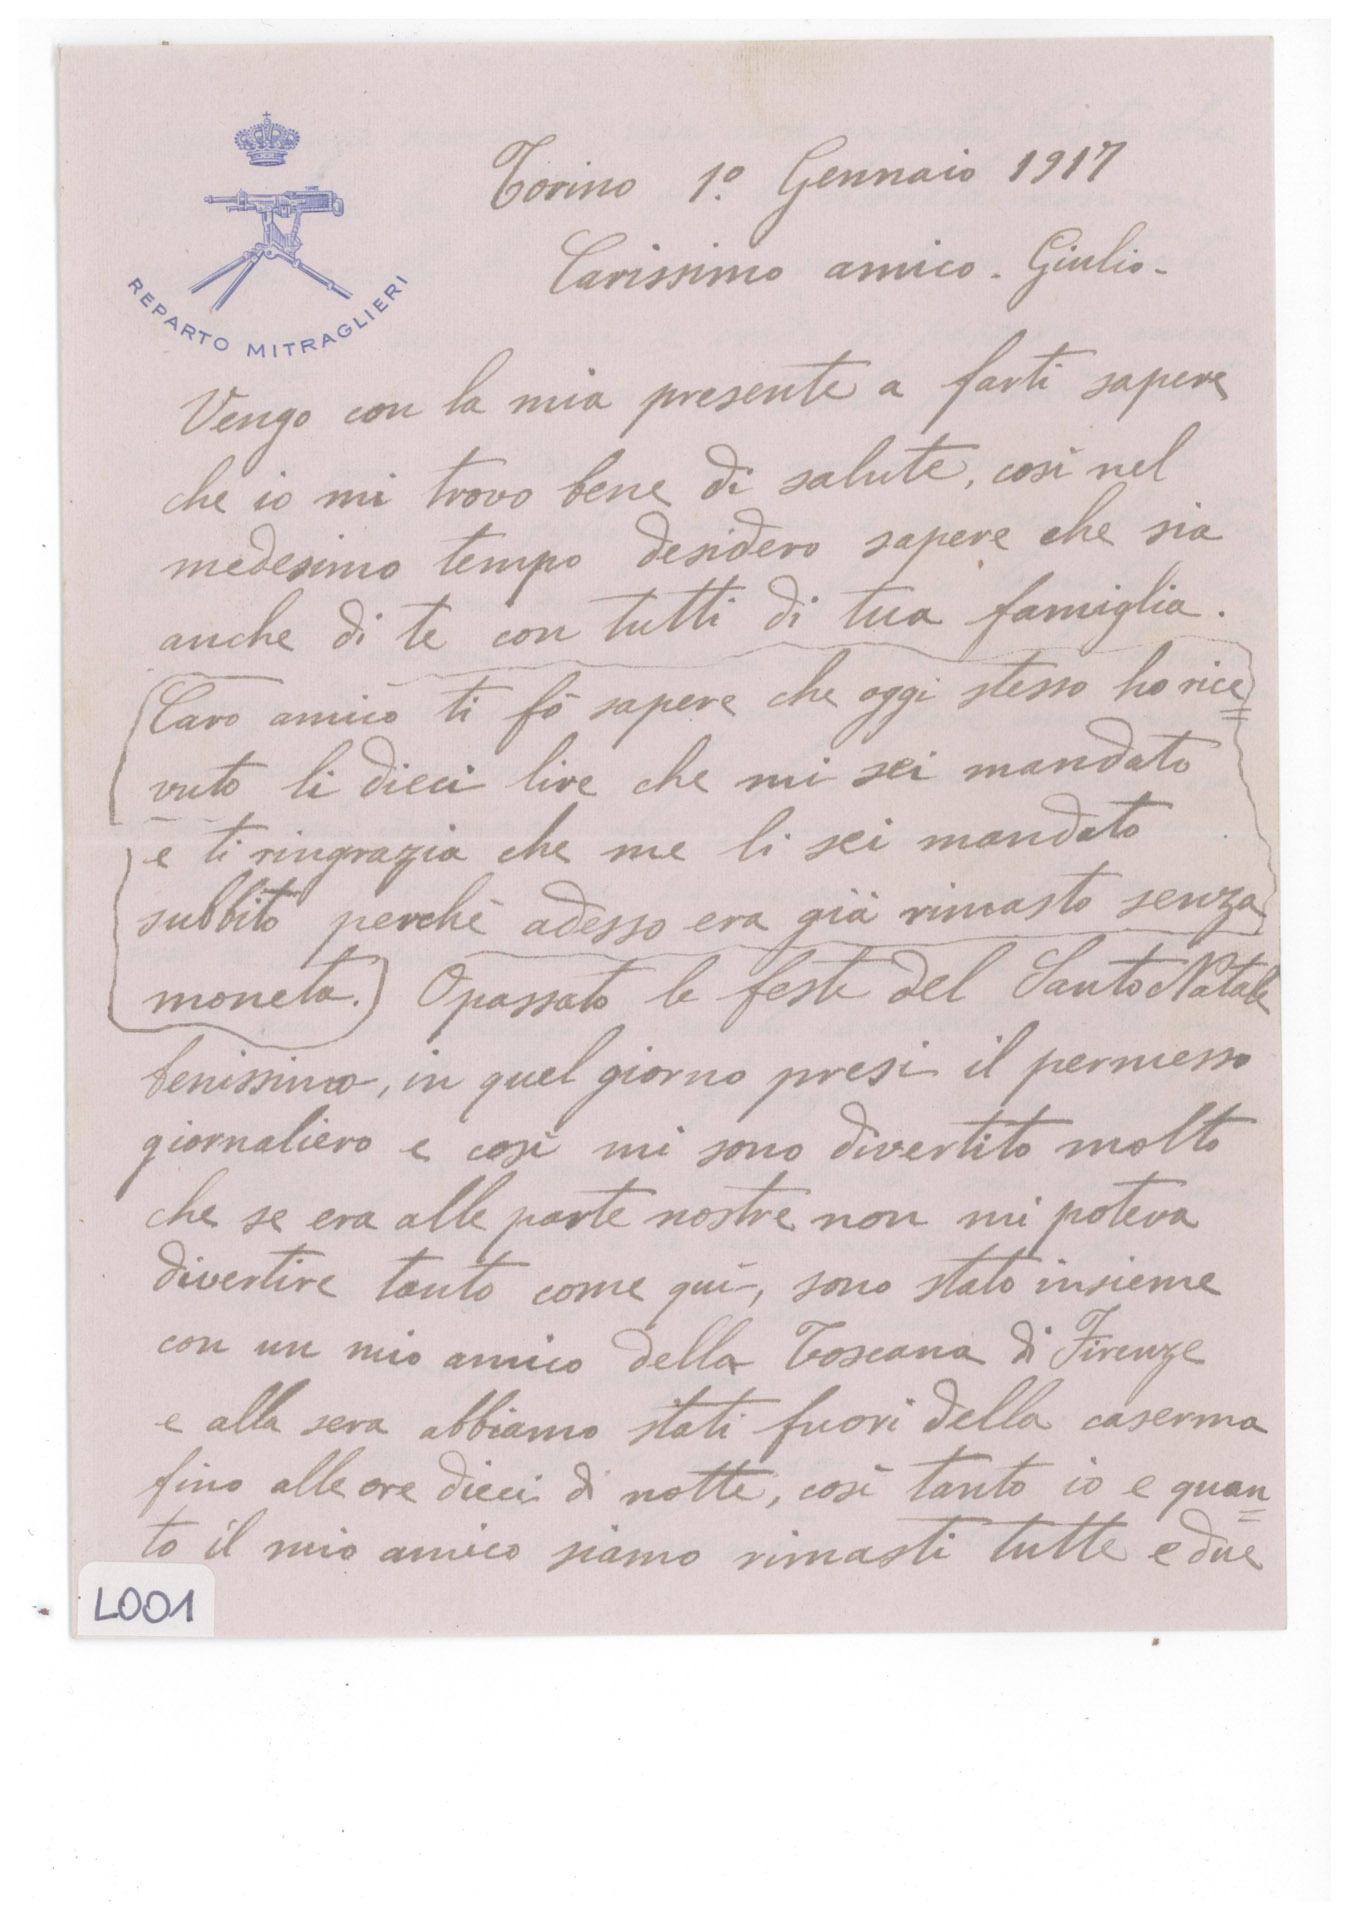 REPARTO MITRAGLIERI
Torino 1º Gennaio 1917
Carissimo amico - Giulio -
Vengo con la mia presente a farti sapere
che io mi trovo bene di salute, così nel
medesimo tempo desidero sapere che sia
anche di te con tutti di tua famiglia.
Caro amico ti fò sapere che oggi stesso ho rice=
vuto li dieci lire che mi sei mandato
e ti ringrazia che me li sei mandato
subbito perchè adesso era già rimasto senza
moneta.) O passato le feste del Santo Natale
benissimo, in quel giorno presi il permesso
giornaliero e così mi sono divertito molto
che se era alle parte nostre non mi poteva
divertire tanto come quì, sono stato insieme
con un mio amico della Toscana di Firenze
e alla sera abbiamo stati fuori della caserma
fino alle ore dieci di notte, così tanto io e quan=
to il mio amico siamo rimasti tutte e due
L001